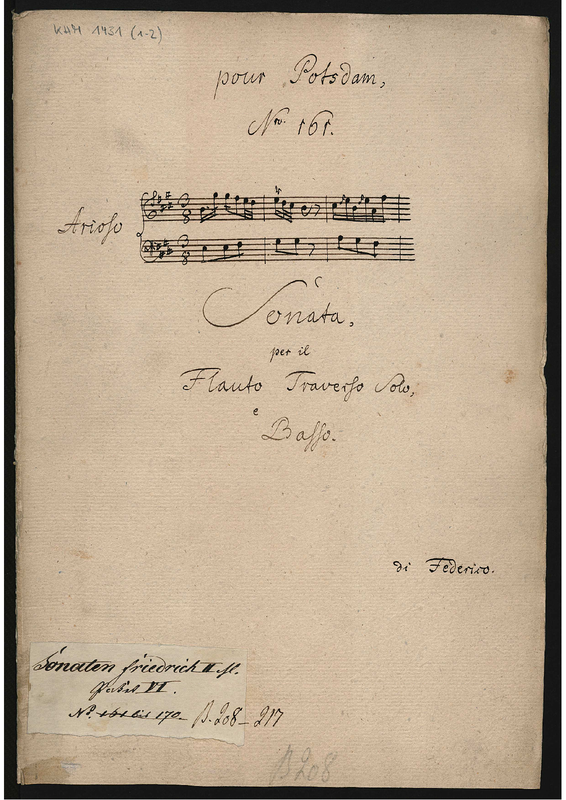 KHM 1431 (1-2)
pour Potsdam,
Nro. 161.
Arioso
Sonata,
per il
Flauto Traverso Solo,
e
Basso.
di Federico.
Sonaten Friedrich II
VI.
No. 161 bis 170 B. 208 – 217
B 208